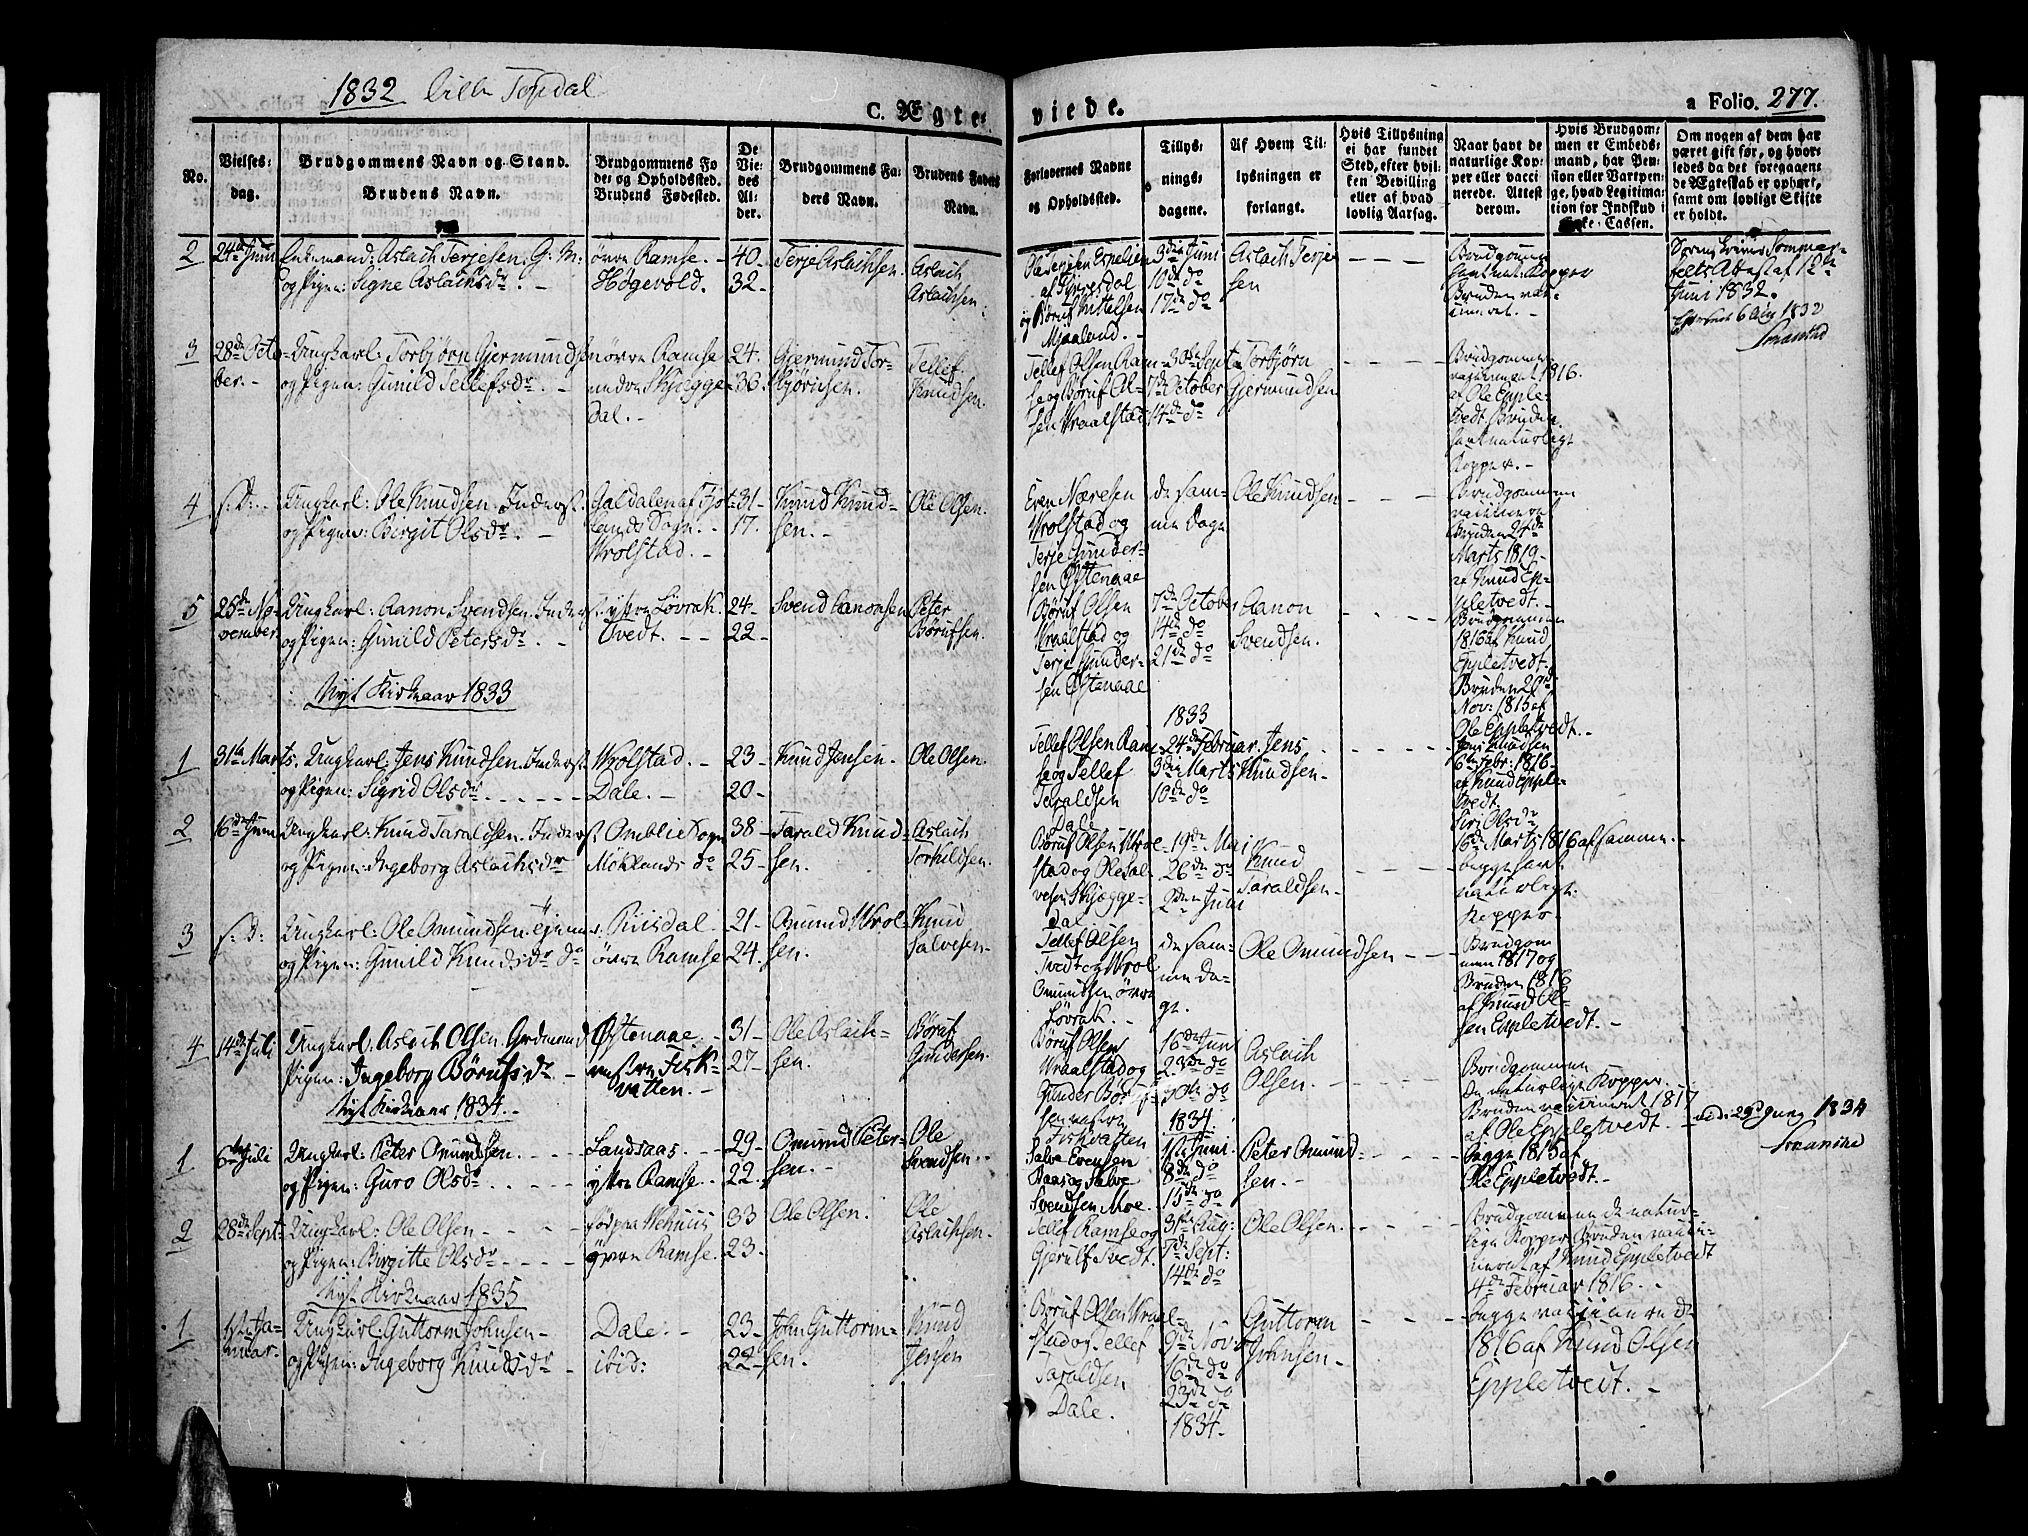 1832
C. Ægte-
viede.
a Folio. 277.
No.
Vielses-
dag.
Brudgommens Navn og Stand.
Brudens Navn.
Brudgommens Fø
de- og Opholdssted.
Brudens Fødested.
De
Vie-
des
Al-
der.
Brudgommens Fa-
ders Navn.
Brudens Faders
Navn.
Forlovernes Navne
og Opholdssted.
Tillys-
nings-
dagene.
Af Hvem Til-
lysningen er
forlangt.
Hvis Tillysning
ei har fundet
Sted, efter hvil-
ken Bevilling
eller af hvad
lovlig Aarsag.
Naar havt de
naturlige Kop-
per eller vacci-
nerede. Attest
derom.
Hvis Brudgom-
men er Embeds-
mand, har Pen-
sion eller Vartpen-
ge, hvad Legitima-
tion for Indskud i
Enke-Cassen.
Om nogen af dem har
været gift før, og hvor-
ledes da det foregaaende
Ægteskab er ophørt,
samt om lovligt Skifte
er holdt.
2
24de Juni
Enkemand: Aslach Terjesen. G: M:
og Pigen: Signe Aslachsdr. -
øvre Ramse. -
Høgevold.
40 -
32 -
Terje Aslachsen.
Aslach
Aslachsen.
af Fyresdal
og Børuf Kittelsen
Mjaaland. -
3die Juni
10de do
17de do
Aslach Terje
sen
- - -
Brudgommen
havt nat: Kopper
Bruden vac-
cineret. -
Attest af 12te
Juni 1832.
6 Aug 1832
3
28de Octo-
ber. -
Ungkarl: Torbjørn Gjermundsen
og Pigen: Gunild Tellefsdr. -
øvre Ramse
nedre Skjegge-
dal. -
24.
36.
Gjermund Tor-
bjørnsen.
Tellef
Knudsen.
Tellef Olsen Ram-
se og Børuf Ol-
sen Wraalstad
30te Septr
7de October
14de do
Torbjørn
Gjermundsen
- - -
Brudgommen
vaccineret 1816.
af Ole Epple-
tvedt. Bruden
havt naturligt
Kopper. -
4
s: D: -
Ungkarl: Ole Knudsen. Inderst.
og Pigen: Birgit Olsdr. -
Galdalen af Fjot-
lands Sogn. -
Wrolstad. -
31 -
17.
Knud Knud-
sen. -
Ole Olsen.
Even Næresen
Wrolstad og
Terje Gunder-
sen Østenaae
de sam-
me Dage
Ole Knudsen
- - -
Brudgommen
vaccineret
Bruden 24de
Marts 1819 -
af Knud Ep-
pletvedt. -
5
25de No-
vember.
Ungkarl: Aanon Svendsen. Inderst.
og Pigen: Gunild Petersdr. -
ytre Løvrak.
Tvedt. - -
24 -
22 -
Svend Aanonsen
Peter
Børufsen.
Børuf Olsen
Wraalstad og
Terje Gunder-
sen Østenaae
7de October
14de do
21de do
Aanon
Svendsen.
- - -
Brudgommen
1816 af Knud
Eppletvedt.
Bruden
Nov: 1815 af
Ole Eppletvedt. -
Nyt Kirkeaar 1833
1833
1
31te Marts.
Ungkarl: Jens Knudsen. Inderst
og Pigen: Sigrid Olsdr - - - - -
Wrolstad. -
Dale. -
23 -
20 -
Knud Jensen.
Ole Olsen.
Tellef Olsen Ram-
se og Tellef
Taraldsen
Dale
24de Februar.
3die Marts
10de do
Jens
Knudsen -
- - - -
Jens Knudsen
6te Febr: 1816 -
af Knud Epple-
tvedt.
Siri Olsdr
16de Marts 1816 af samme. -
2
16de Juni
Ungkarl: Knud Taraldsen. Inderst.
og Pigen: Ingeborg Aslachsdr
Omblie Sogn
Moklands do
38 -
25 -
Tarald Knud-
sen.
Aslach
Torkildsen.
Børuf Olsen Wrol-
stad og Ole Sal-
vesen Skjegge-
dal
19de Mai
26de do
2den Juni
Knud
Taraldsen -
- - -
begge havt
naturligt
Kopper.
3
s: D:
Ungkarl: Ole Omundsen.
og Pigen: Gunild Knudsdr do
Riisdal.
øvre Ramse
21 -
24.
Omund Wrol-
sen.
Knud
Salvesen -
Tellef Olsen
Tvedt og Wrol
Omundsen øvre
Løvrak. -
de sam-
me Da-
ge.
Ole Omundsen
- - -
Brudgom
men 1817 og
Bruden 1816
af Knud Ol-
sen Eppletvedt. -
4
14de Juli
Ungkarl: Aslach Olsen.
Pigen: Ingeborg Børufsdr -
Østenaae. -
vestre Fisk-
vatten. -
31 -
27 -
Ole Aslach-
sen.
Børuf
Gundersen.
Børuf Olsen
Wraalstad og
Gunder Børuf-
sen vestre
Fiskvatten
16de Juni
23de do
30te do
Aslach
Olsen. -
- - -
Brudgommen
de naturlige Kopper.
Bruden vaccineret 1817
af Ole Eppletvedt. -
Nyt Kirkeaar 1834. -
1834.
1834
1
6te Juli
Ungkarl: Peter Omundsen. - - -
og Pigen: Guro Olsdr. - - - -
Landsaas. -
ytre Ramse. -
29 -
22 -
Omund Peter-
sen. -
Ole
Svendsen. -
Salve Evensen
Aas og Salve
Svendsen Moe.
1ste Juni
8de do
15de do
Peter Omund-
sen. -
- - -
begge 1815 af
Ole Eppletvedt. -
2
28de Sept:
Ungkarl: Ole Olsen - - - -
og Pigen: Birgitte Olsdr. - - -
øvre Ramse.
33
23 -
Ole Olsen.
Ole
Aslachsen.
Tellef Ramse og
Gjerulf Tvedt.
31te Aug:
7de Sept:
14de do
Ole Olsen.
- - - -
Brudgommen de natur-
lige Kopper. Bruden vacci-
neret af Knud Eppletvedt
4de Februar 1816. -
Nyt Kirkeaar 1835
1
1ste Ja-
nuar.
Ungkarl: Guttorm Johnsen -
og Pigen: Ingeborg Knudsdr -
Dale. -
ibid:
23 -
22 -
John Guttorm-
sen.
Knud
Jensen
Børuf Olsen Wraal-
stad og Tellef
Taraldsen
Dale.
9de Nov:
16de do
23de do
1834 -
Guttorm
Johnsen -
- - -
begge vaccinerede
1816 af Knud Olsen
Eppletvedt. -